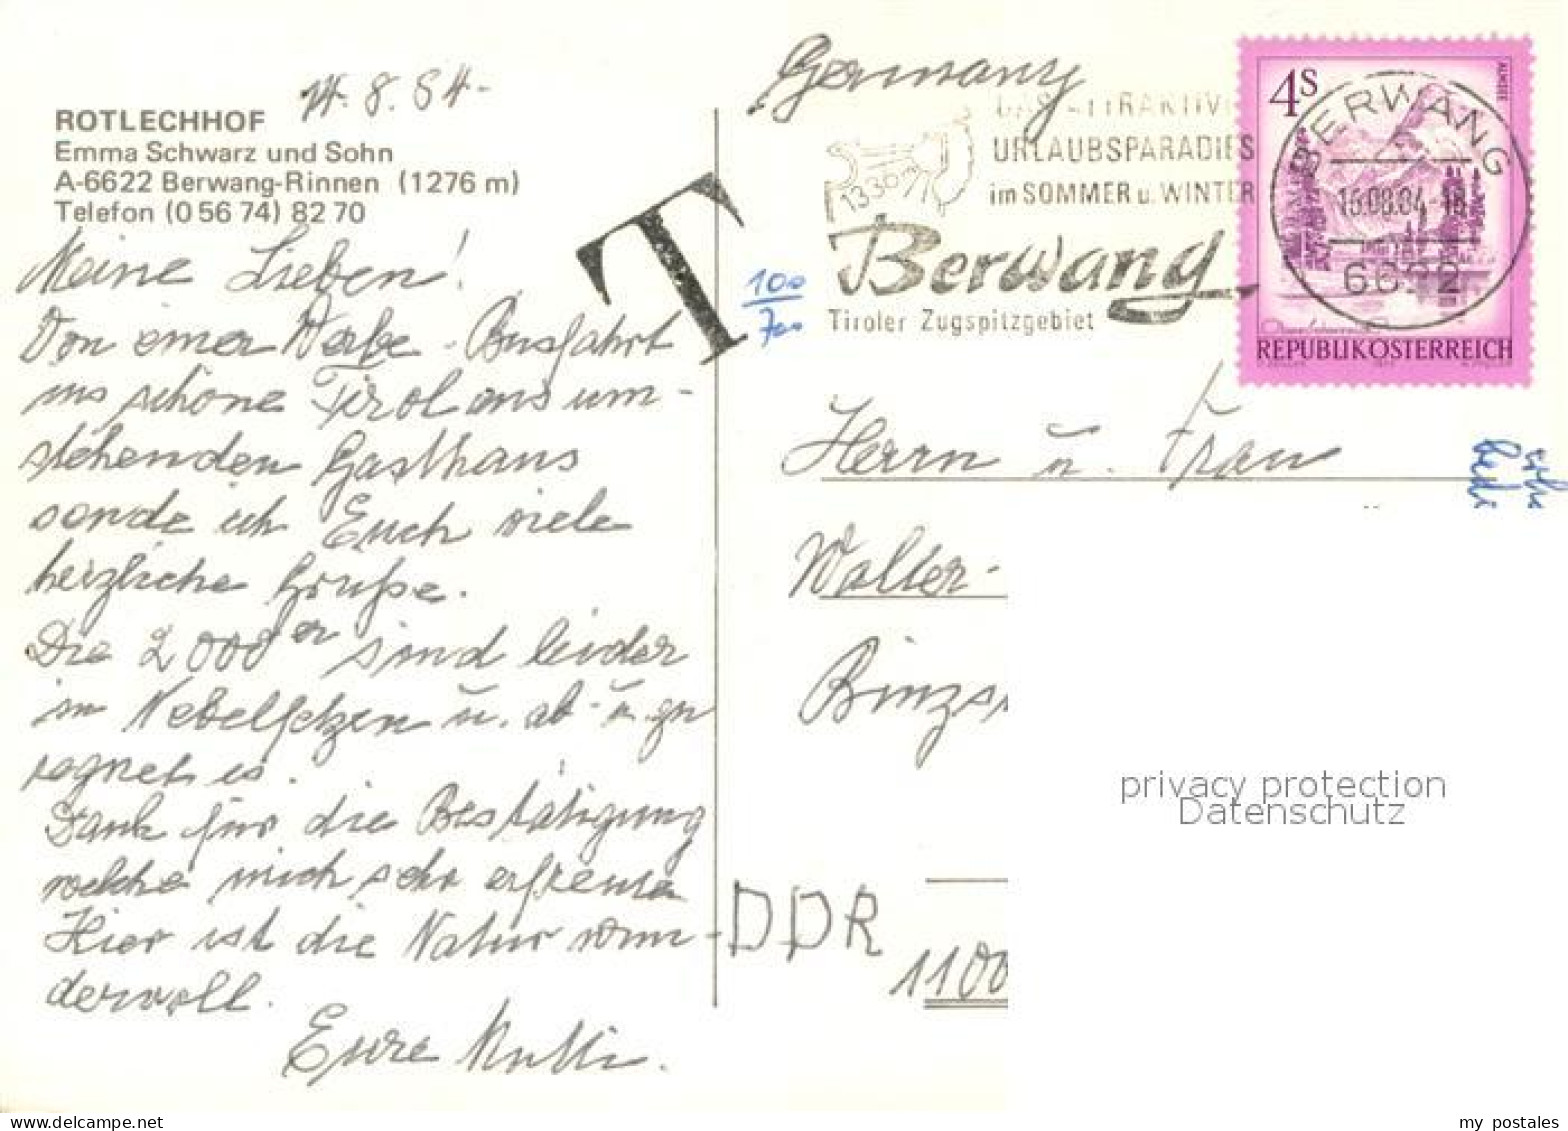 14.8.84-
ROTLECHHOF
Emma Schwarz und Sohn
A-6622 Berwang-Rinnen (1276 m)
Telefon (0 56 74) 82 70
Meine Lieben!
Von einer Werbe-Busfahrt
ins schöne Tirol aus um-
stehenden Gasthaus
sende ich Euch viele
herzliche Grüße.
Die 2000er sind leider
in Nebelfetzen u. ab- u. zu
regnet es.
Dank für die Bestätigung
welche mich sehr erfreute
Hier ist die Natur wun-
dervoll.
Eure Mutti.
T
100
700
Germany
ATTRAKTIVE
URLAUBSPARADIES
im SOMMER u. WINTER
1336 m
Berwang
Tiroler Zugspitzgebiet
4S
ALMSEE
BERWANG
15.08.84-18
6622
REPUBLIK ÖSTERREICH
Herrn u. Frau
Walter-
Binzs
DDR
1100
privacy protection
Datenschutz
my postales